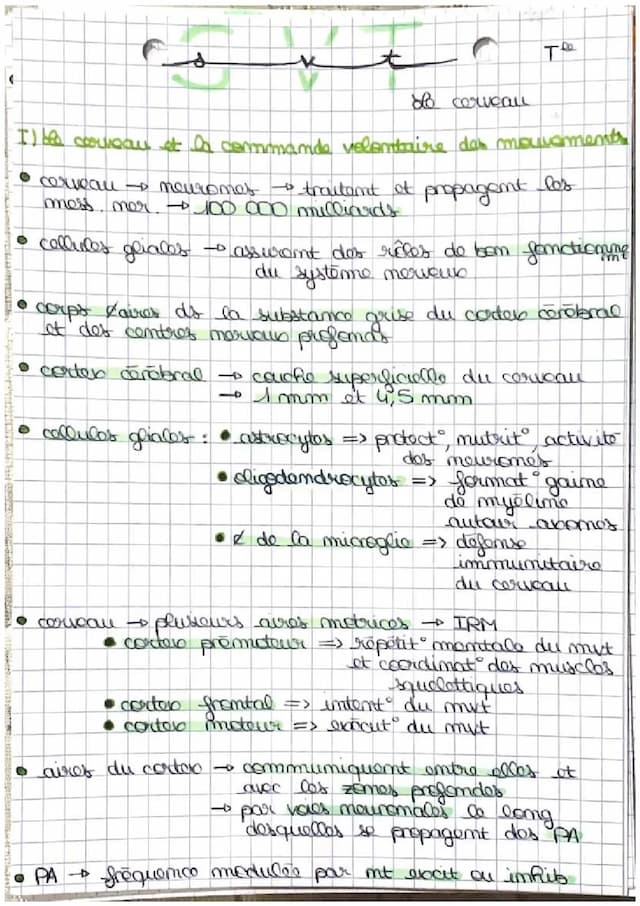 SVT
s v t
Tle
Le cerveau
I) Le cerveau et la commande volontaire des mouvements
• cerveau → neurones → traitent et propagent les
mess. ner. → 100 000 milliards
• cellules gliales → assurent des rôles de bon fonctionnement
du système nerveux
• corps ¢aires ds la substance grise du cortex cérébral
et des centres nerveux profonds
• cortex cérébral → couche superficielle du cerveau
→ 1 mm et 4,5 mm
• cellules gliales : • astrocytes => protect°, nutrit°, activité
des neurones
• oligodendrocytes => format° gaine
de myéline
autour axones
• ¢ de la microglie => défense
immunitaire
du cerveau
• cerveau → plusieurs aires motrices → IRM
• cortex prémoteur => répétit° mentale du mvt
et coordinat° des muscles
squelettiques
• cortex frontal => intent° du mvt
• cortex moteur => exécut° du mvt
• aires du cortex → communiquent entre elles et
avec les zones profondes
→ par voies neuronales le long
desquelles se propagent des PA
• PA → fréquence modulée par nt excit ou inhib